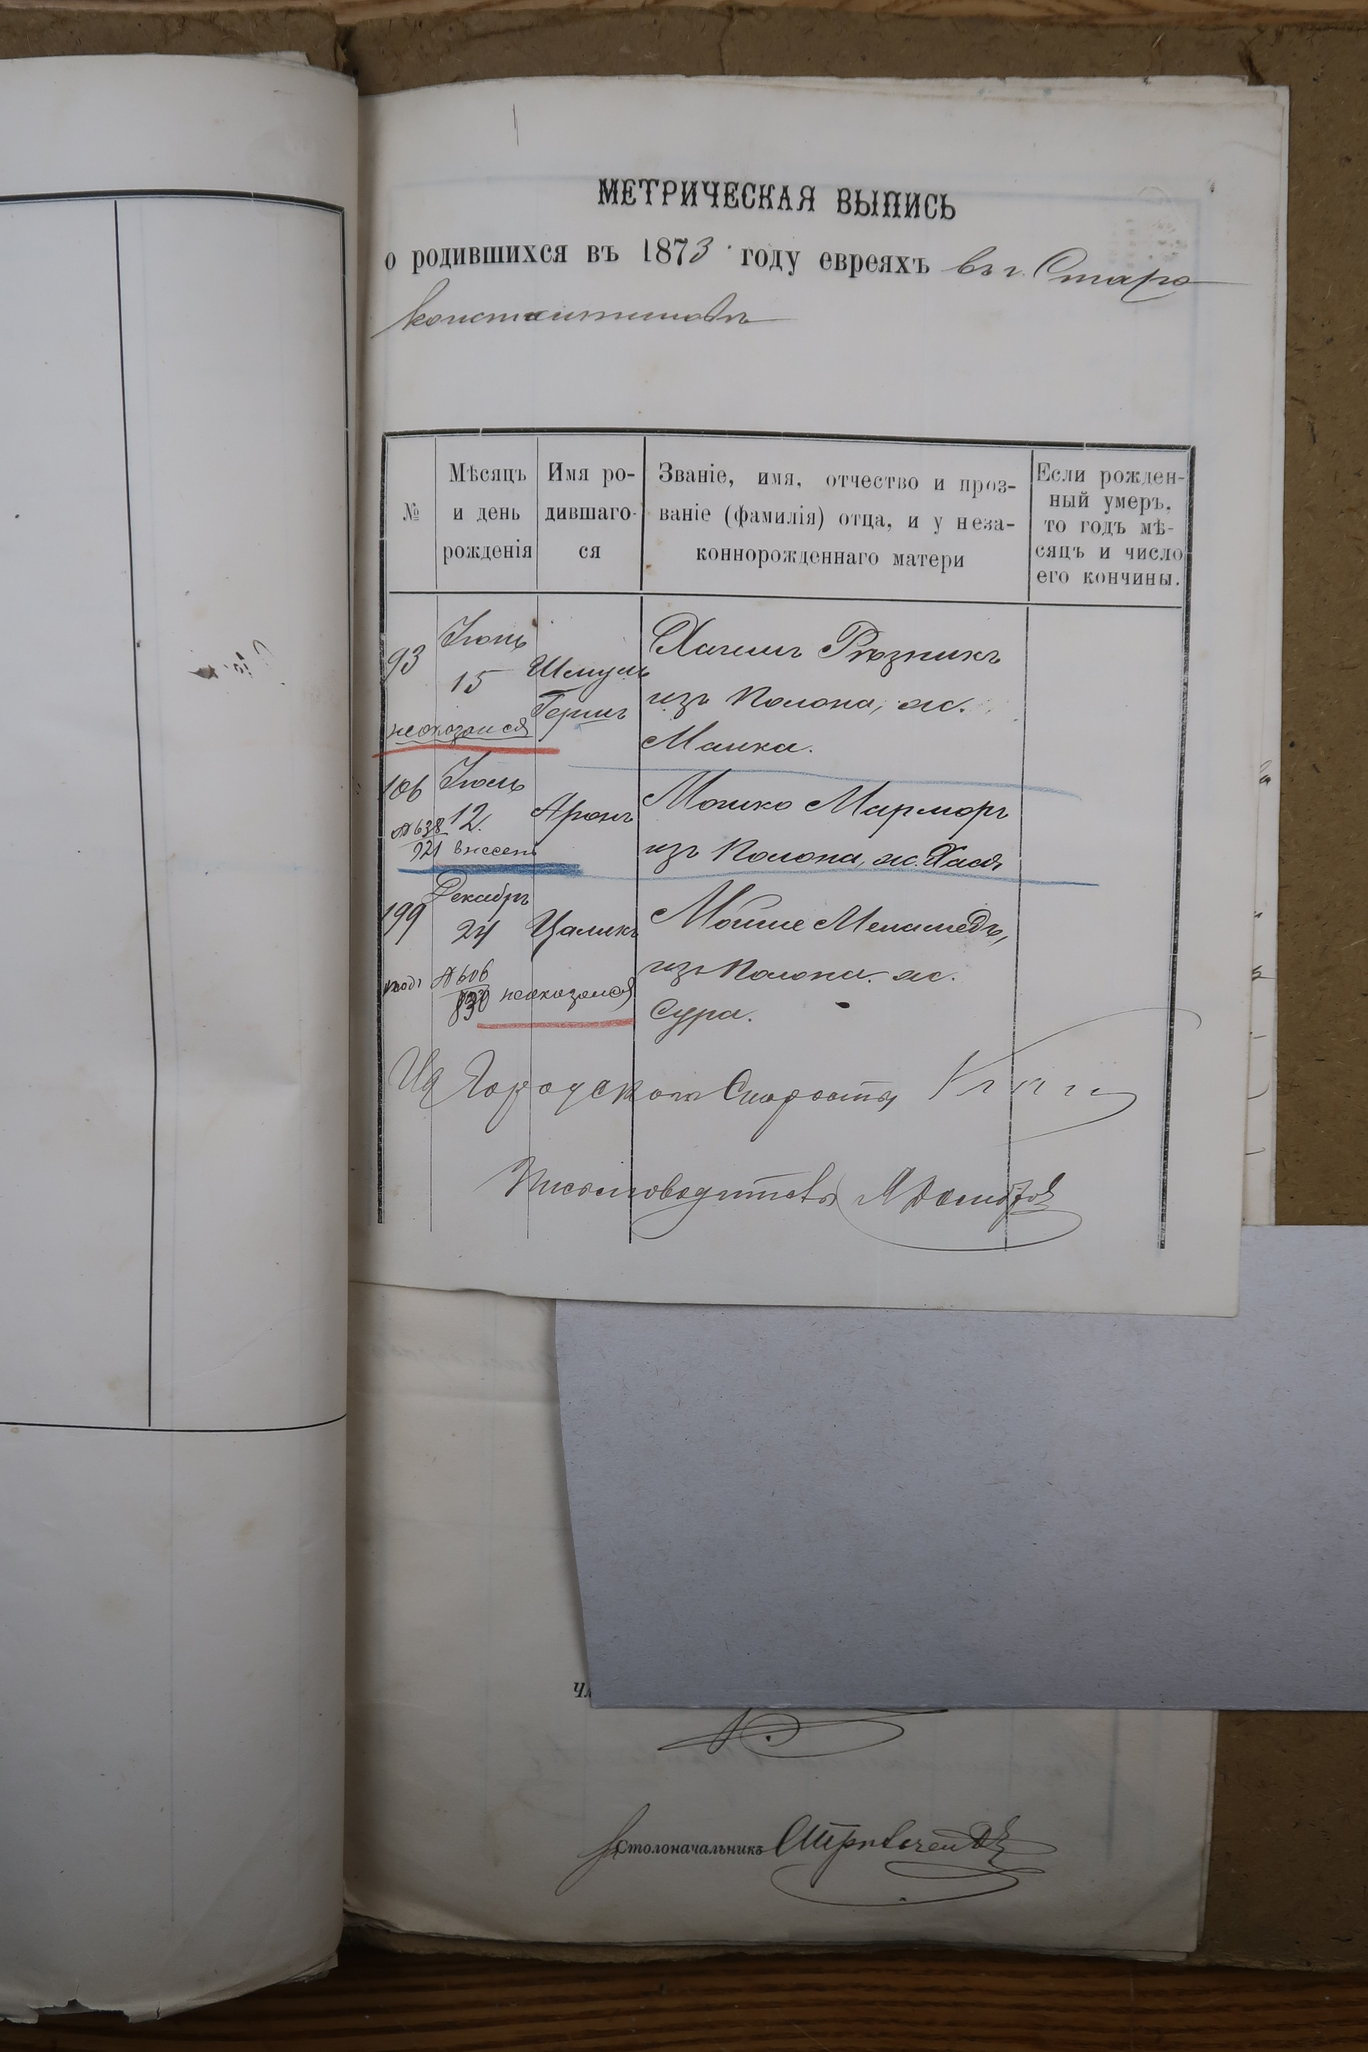 МЕТРИЧЕСКАЯ ВЫПИСЬ
о родившихся въ 1873 году евреяхъ въ г. Старо
константиновѣ
№
Мѣсяцъ
и день
рожденія
Имя ро-
дившаго-
ся
Званіе, имя, отчество и проз-
ваніе (фамилія) отца, и у неза-
коннорожденнаго матери
Если рожден-
ный умеръ,
то годъ мѣ-
сяцъ и число
его кончины.
93
Іюнь
15
Шмуль
Гершъ
неоказался
Хаимъ Рѣзникъ
изъ Полона, ж.
Малка.
106
Іюль
12.
Аронъ
№ 638
921 внесенъ
Мошко Марморъ
изъ Полона, ж. Хася
199
Декабрь
24
Цаликъ
под. № 606
830 неоказался
Мойше Меламедъ,
изъ Полона. ж.
Сура.
Городского Старосты
Письмоводитель
Столоначальникъ